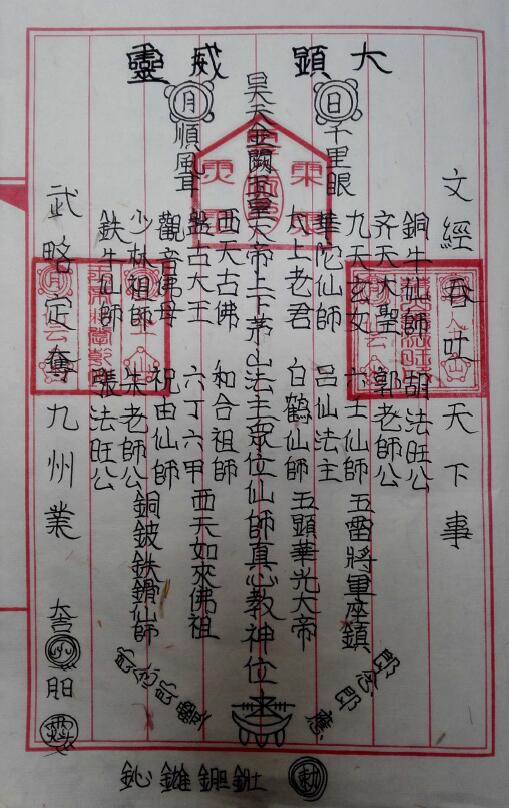 大顯威靈
日
月
文經吞吐天下事
銅牛仙師 胡法旺公
齊天大聖 郭老師公
九天玄女 六壬仙師 五雷將軍座鎮
千里眼
華陀仙師 呂仙法主
太上老君 白鶴仙師 五顯華光大帝
昊天金闕玉皇大帝上下茅山法主眾位仙師真心教神位
西天古佛 和合祖師
盤古大王 六丁六甲 西天如來佛祖
順風耳
觀音佛母 祝由仙師
少林祖師 朱老師公 銅鈸鉄鎖仙師
鉄牛仙師 張法旺公
武略定奪九州業
勅